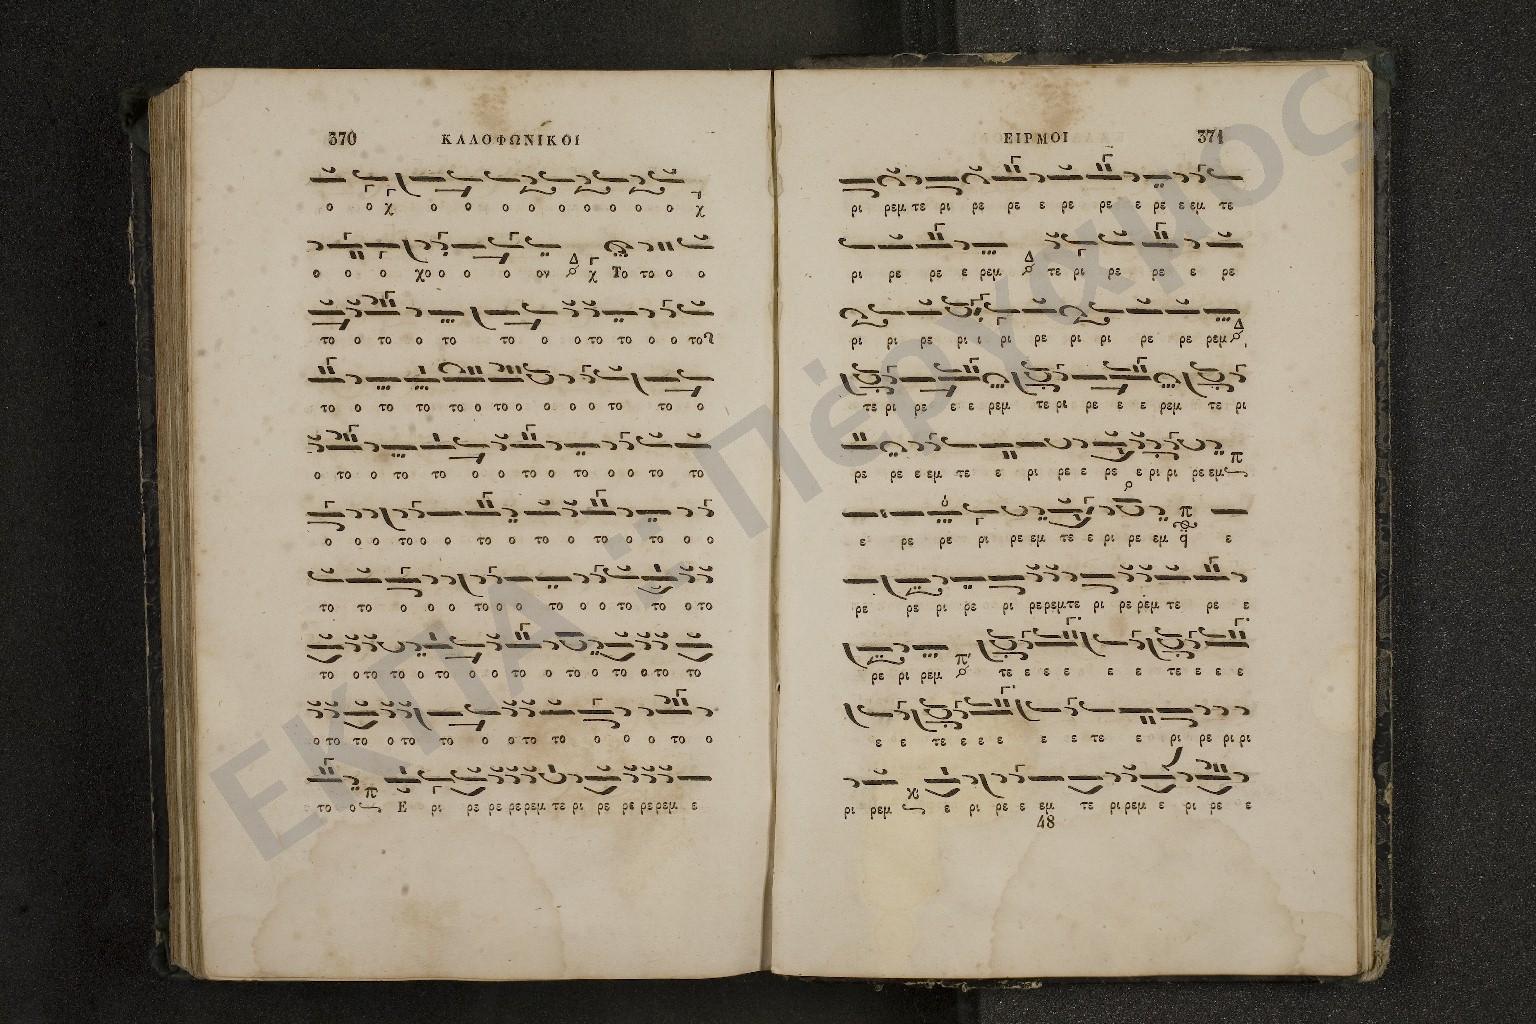 370 ΚΑΛΟΦΩΝΙΚΟΙ
ο ο χ ο ο ο ο ο ο ο ο ο χ
ο ο ο χο ο ο ο ον Δ χ Το το ο ο
το ο το ο το το ο ο το το ο ο το
το ο το το το ο το ο ο ο ο το το ο
ο το ο το το ο ο το ο το ο ο το το
ο ο ο το ο ο το ο το ο το ο το ο ο
το το ο ο ο το ο ο το ο ο το το ο το
το ο το ο το ο το ο ο το ο το ο το ο το ο το το
ο το το ο το το ο ο το το ο ο ο το ο
το ο π Ε ρι ρε ρε ρε ρεμ τε ρι ρε ρε ρε ρεμ ε
ΕΙΡΜΟΙ 371
ρι ρεμ τε ρι ρε ρε ε ρε ρε ε ρε ε εμ τε
ρι ρε ρε ε ρεμ Δ τε ρι ρε ρε ε ρε
ρι ρι ρε ρι ι ρι ρε ρι ρι ρε ρε ρεμ Δ
τε ρι ρε ε ε ρεμ τε ρι ρε ε ε ρεμ τε ρι
ρε ρε ε εμ τε ε ρι ρε ε ρε ε ρι ρι ρε εμ π
ε ρε ρε ρι ρε εμ τε ε ρι ρε εμ π q ε
ρε ρε ρι ρε ρι ρε ρεμ τε ρι ρε ρεμ τε ρε ε
ρε ρι ρεμ π τε ε ε ε ε ε τε ε ε ε
ε ε τε ε ε ε ε ε τε ε ρι ρε ρι ρι
ρι ρεμ ε ρι ρε ε εμ τε ρι ρεμ ε ρι ρε ε
48
ΕΚΠΑ : Πέργαμος